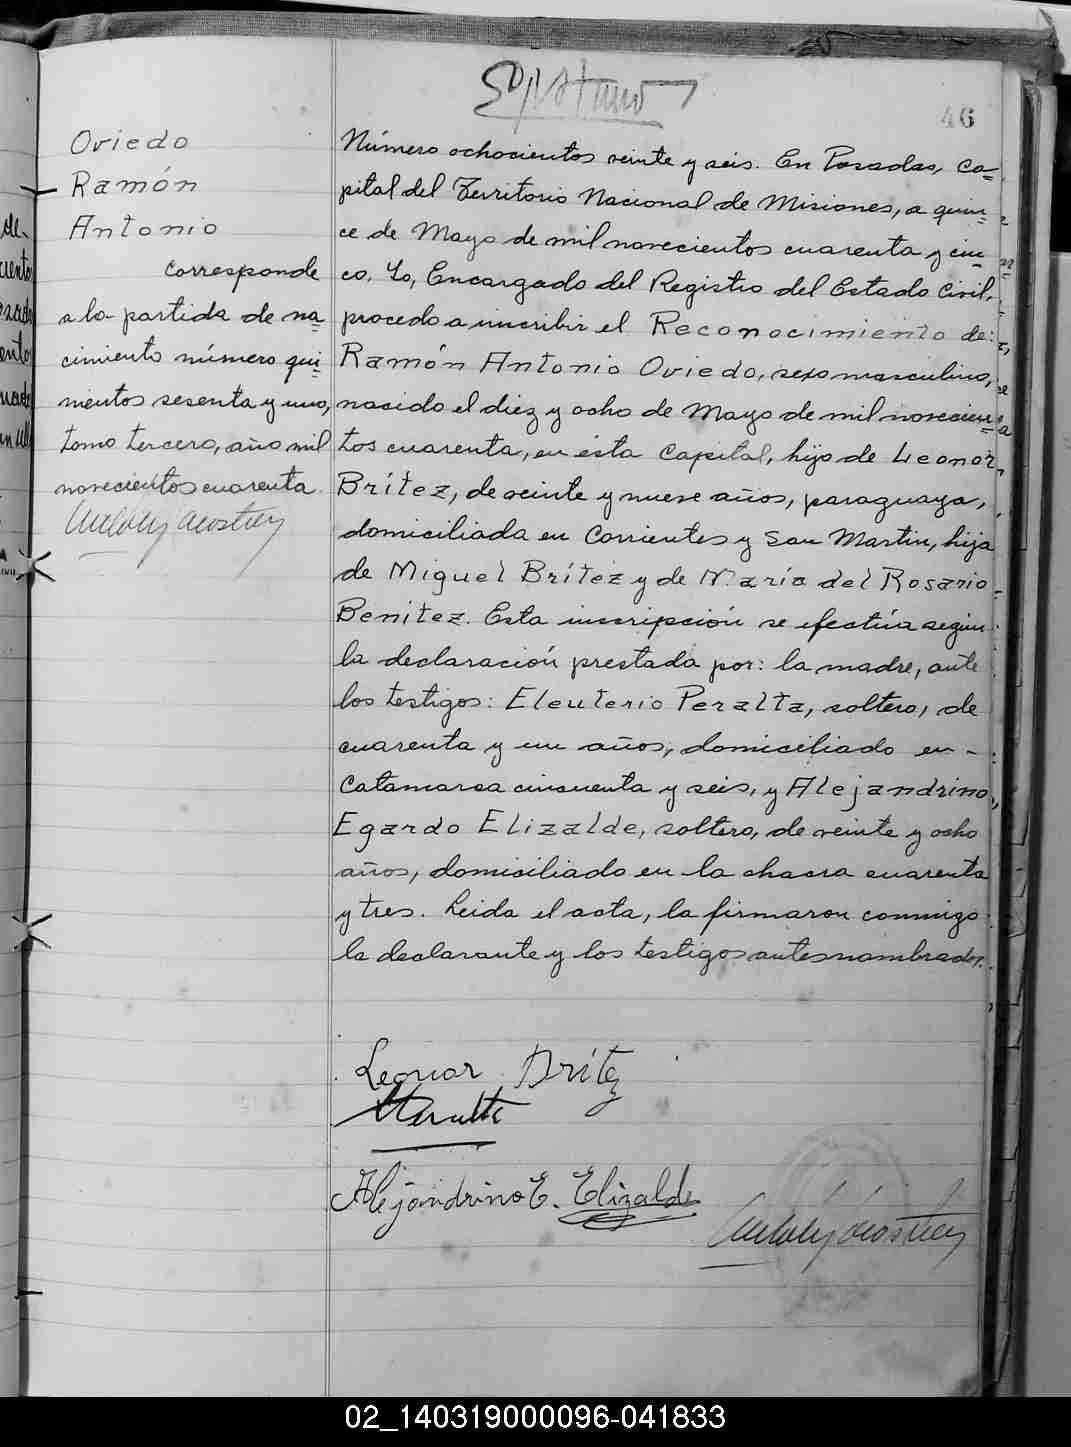 46
Oviedo
Ramón
Antonio
corresponde
a la partida de na=
cimiento número qui=
nientos sesenta y uno,
tomo tercero, año mil
novecientos cuarenta.
Número ochocientos veinte y seis. En Posadas, ca=
pital del Territorio Nacional de Misiones, a quin=
ce de Mayo de mil novecientos cuarenta y cin=
co. Yo, Encargado del Registro del Estado Civil,
procedo a inscribir el Reconocimiento de:
Ramón Antonio Oviedo, sexo masculino,
nacido el diez y ocho de Mayo de mil novecien=
tos cuarenta, en ésta Capital, hijo de Leonor
Brítez, de veinte y nueve años, paraguaya,
domiciliada en Corrientes y San Martin, hija
de Miguel Brítez y de María del Rosario
Benitez. Esta inscripción se efectúa según
la declaración prestada por: la madre, ante
los testigos: Eleuterio Peralta, soltero, de
cuarenta y un años, domiciliado en -
Catamarca cincuenta y seis, y Alejandrino
Egardo Elizalde, soltero, de veinte y ocho
años, domiciliado en la chacra cuarenta
y tres. Leida el acta, la firmaron conmigo
la declarante y los testigos antes nombrados.
Leonor Brítez
Alejandrino E. Elizalde
02_140319000096-041833